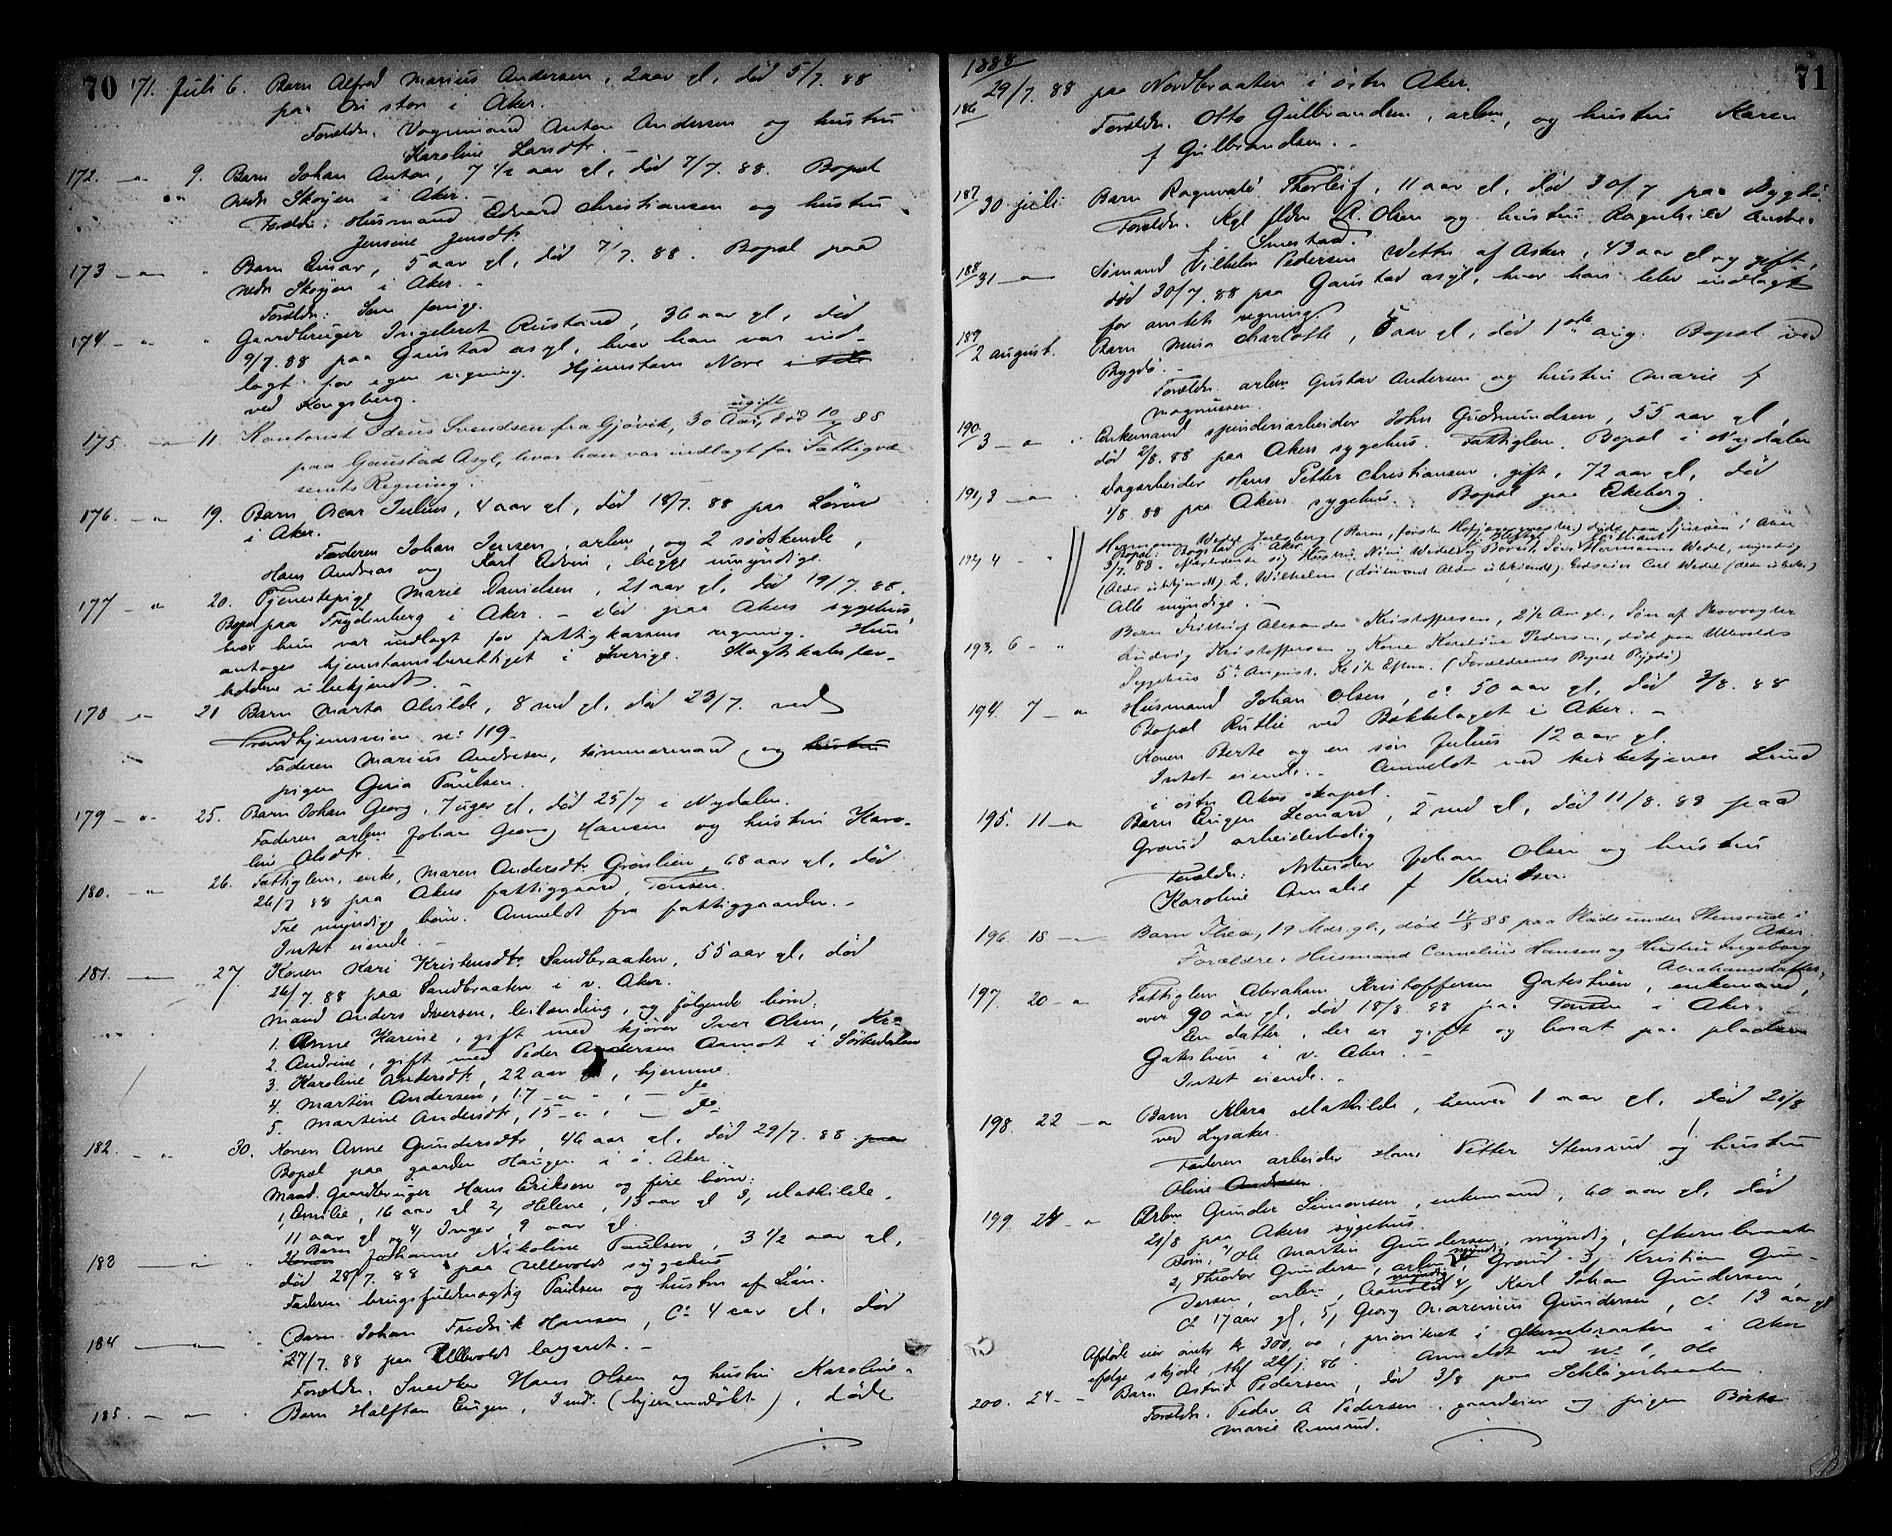 70
171. Juli 6. Barn Alfred Marius Andersen, 2 aar gl, død 5/7 88
paa stor i Aker.
Foreldr. Vognmand Anton Andersen og hustru
Karoline Larsdtr. -
172. - " 9. Barn Johan Anton, 7 1/2 aar gl, død 7/7. 88. Bopæl
nedr Skøyen i Aker.
Foreldr: Husmand Edvard Christiansen og hustru
Jensine Jensdtr
173 - " " Barn Einar, 5 aar gl, død 7/7. 88. Bopæl paa
nedr Skøyen i Aker. -
Foreldr: Som forrige.
174 - " " Gaardbruger Ingebret Rustand, 36 aar gl, død
9/7. 88 paa Gaustad asyl, hvor han var ind-
lagt for egen regning. Hjemstavn Nore i
ved Kongsberg.
ugift
175. - " 11. Kontorist Svendsen fra Gjøvik, 30 Aar, død 10/7 88
paa Gaustad Asyl, hvor han var indlagt for Fattigvæ-
senets Regning.
176. - " 19. Barn Oscar Julius, 4 aar gl, død 18/7. 88 paa Løren
i Aker.
Faderen Johan Jensen, arbm, og 2 sødskende,
Hans Andreas og Karl Edvin, begge umyndige.
177 - " 20. Tjenestepige Marie Danielsen, 21 aar gl, død 19/7. 88.
Bopæl paa Frydenberg i Aker. - død paa Akers sygehus,
hvor hun var indlagt for fattigkassens regning. Hun
antages hjemstavnsberettiget i Sverige. Slægtskabsfor-
holdene ubekjendt. -
178 - " 21 Barn Marta Alvilde, 8 md gl, død 23/7. ved
Trondhjemsveien no 119.
Faderen Marius Andresen, tømmermand, og hustru
pigen Gina Paulsen.
179 - " 25. Barn Johan Georg, 7 uger gl, død 25/7 i Nydalen.
Faderen arbm Johan Georg Hansen og hustru Karo-
line Olsdtr. -
180. - " 26. Fattiglem, enke, Maren Andersdtr Grønlien, 68 aar gl, død
26/7 88 paa Akers fattiggaard, Tonsen.
Tre myndige børn. Anmeldt fra fattiggaarden. -
Intet eiende. -
181. - 27. Konen Kari Kristensdtr Sandbraaten, 55 aar gl, død
26/7. 88 paa Sandbraaten i v. Aker.
Mand Anders Iversen, leilænding, og følgende børn:
1. Anne Karine, gift med kjører Iver Olsen, Kr.a
2. Andrine, gift med Peder Andersen Aamot i Sørkedalen
3. Karoline Andersdtr, 22 aar gl, hjemme.
4. Martin Andersen, 17 - " , - do
5. Martine Andersdtr, 15 - " , - do
182. - " 30. Konen Anne Gundersdtr, 46 aar gl, død 29/7. 88 paa
Bopæl paa gaarden Haugen i ø. Aker.
Mand. Gaardbruger Hans Eriksen og fire børn:
1, Emilie, 16 aar gl 2, Helene, 13 aar gl 3, Mathilde,
11 aar gl og 4, Inger, 9 aar gl.
183 - " " Barn Johanne Nikoline Paulsen, 3 1/2 aar gl,
død 28/7. 88 paa Ullevolds sygehus
Faderen brugsfuldmægtig Paulsen og hustru af Lian.
184 - " Barn Johan Fredrik Hansen, Ca 4 aar gl, død
27/7. 88 paa Ullevolds lazaret. -
Foreldr. Snedker Hans Olsen og hustru Karoline.
185. - " - Barn Halftan Eugen, 7 md. (hjemmedøbt), døde
1888
71
186 29/7. 88 paa Nordbraaten i østre Aker.
Foreldr. Otto Gulbrandsen, arbm, og hustru Karen
f Gulbrandsen. -
187 30 juli. Barn Ragnvald Thorleif, 11 aar gl, død 30/7 paa Bygdø.
Foreldr. Kgl A. Olsen og hustru Ragnhild
Smestad.
188 31 - " Sømand Vilhelm Pedersen Wettre af Asker, 43 aar gl og gift,
død 30/7. 88 paa Gaustad asyl, hvor han blev indlagt
for amtets regning.
189 2 august. Barn Charlotte, 5 aar gl, død 1ste aug. Bopæl ved
Bygdø. -
Foreldr. arbm Gustav Andersen og hustru Marie f
Magnussen.
190 3 - " " Enkemand spinderiarbeider John Gudmundsen, 55 aar gl,
død 2/8. 88 paa Akers sygehus. Fattiglem. Bopæl i Nydalen
191, 3 - " . Dagarbeider Hans Petter Christiansen, gift, 72 aar gl, død
1/8. 88 paa Akers sygehus. Bopæl paa Ekeberg.
192, 4 - " Hermann Wedel Jarlsberg (Baron, første Hofjægermester) døde paa i Aker
Bopæl: Bogstad i Aker
3/7. 88. efterladende sig Hustru Wedel og Børn: 1, Søn Hermann Wedel, myndig
(Alder ubekjendt) 2, Wilhelm (Alder ubekjendt). Carl Wedel
Alle myndige. -
193, 6 - " Barn Fritthjof Alexander Kristoffersen, 2 1/2 Aar gl., Søn af
Ludvig Kristoffersen og Kone Karoline Pedersen, død paa Ullevolds
Sygehus 5te August, Kl 1 1/2 Efterm. (Forældrenes Bopæl Bygdø)
194. 7 - " Husmand Johan Olsen, ca 50 aar gl, død 3/8. 88
Bopæl Rutlie ved Bækkelaget i Aker. -
Konen Berte og en søn Julius 12 aar gl.
Intet eiende. - Anmeldt ved kirketjener Lund
i østre Akers kapel.
195. 11 - " Barn Eugen Leonard, 2 md gl, død 11/8. 88 paa
Grønd arbeiderbolig
Foreldr: Arbeider Johan Olsen og hustru
Karoline Amalie f
196. 18 - Barn Thea, 19 Mdr. gl., død 17/8 88 paa Plads under Stensrud i
Aker.
Forældre: Husmand Cornelius Hansen og Hustru Ingeborg
Abrahamsdatter.
197. 20 - " Fattiglem Abraham Kristoffersen Gatestuen, enkemand,
over 90 aar gl, død 18/8. 88 paa Tonsen i Aker.
En datter, der er gift og bosat paa pladsen
Gatestuen i v. Aker. -
Intet eiende. -
198. 22 - " Barn Klara Mathilde, henved 1 aar gl, død 21/8
ved Lysaker.
Faderen arbeider Hans Petter Stensrud og hustru
Oline Andersen.
199. 24 - " Arbm Gunder Simonsen, enkemand, 60 aar gl, død
21/8 paa Akers sygehus.
Børn: 1, Ole Martin Gundersen, myndig,
2, Theodor Gundersen, arbm, myndig, Grønd 3, Kristian Gun-
dersen, arbm, myndig 4, Karl Johan Gundersen,
Ca 17 aar gl, 5, Georg Marenius Gundersen, ca 13 aar gl
Afdøde eier antr kr 300,00, prioriteret i i Aker
ifølge skjøde Anmeldt ved no 1, Ole
200. 24 - " Barn Astrid Pedersen, død 3/8 paa Schlägerbraaten
Foreldr. Peder A Pedersen, gaardeier og pigen Berte
Marie